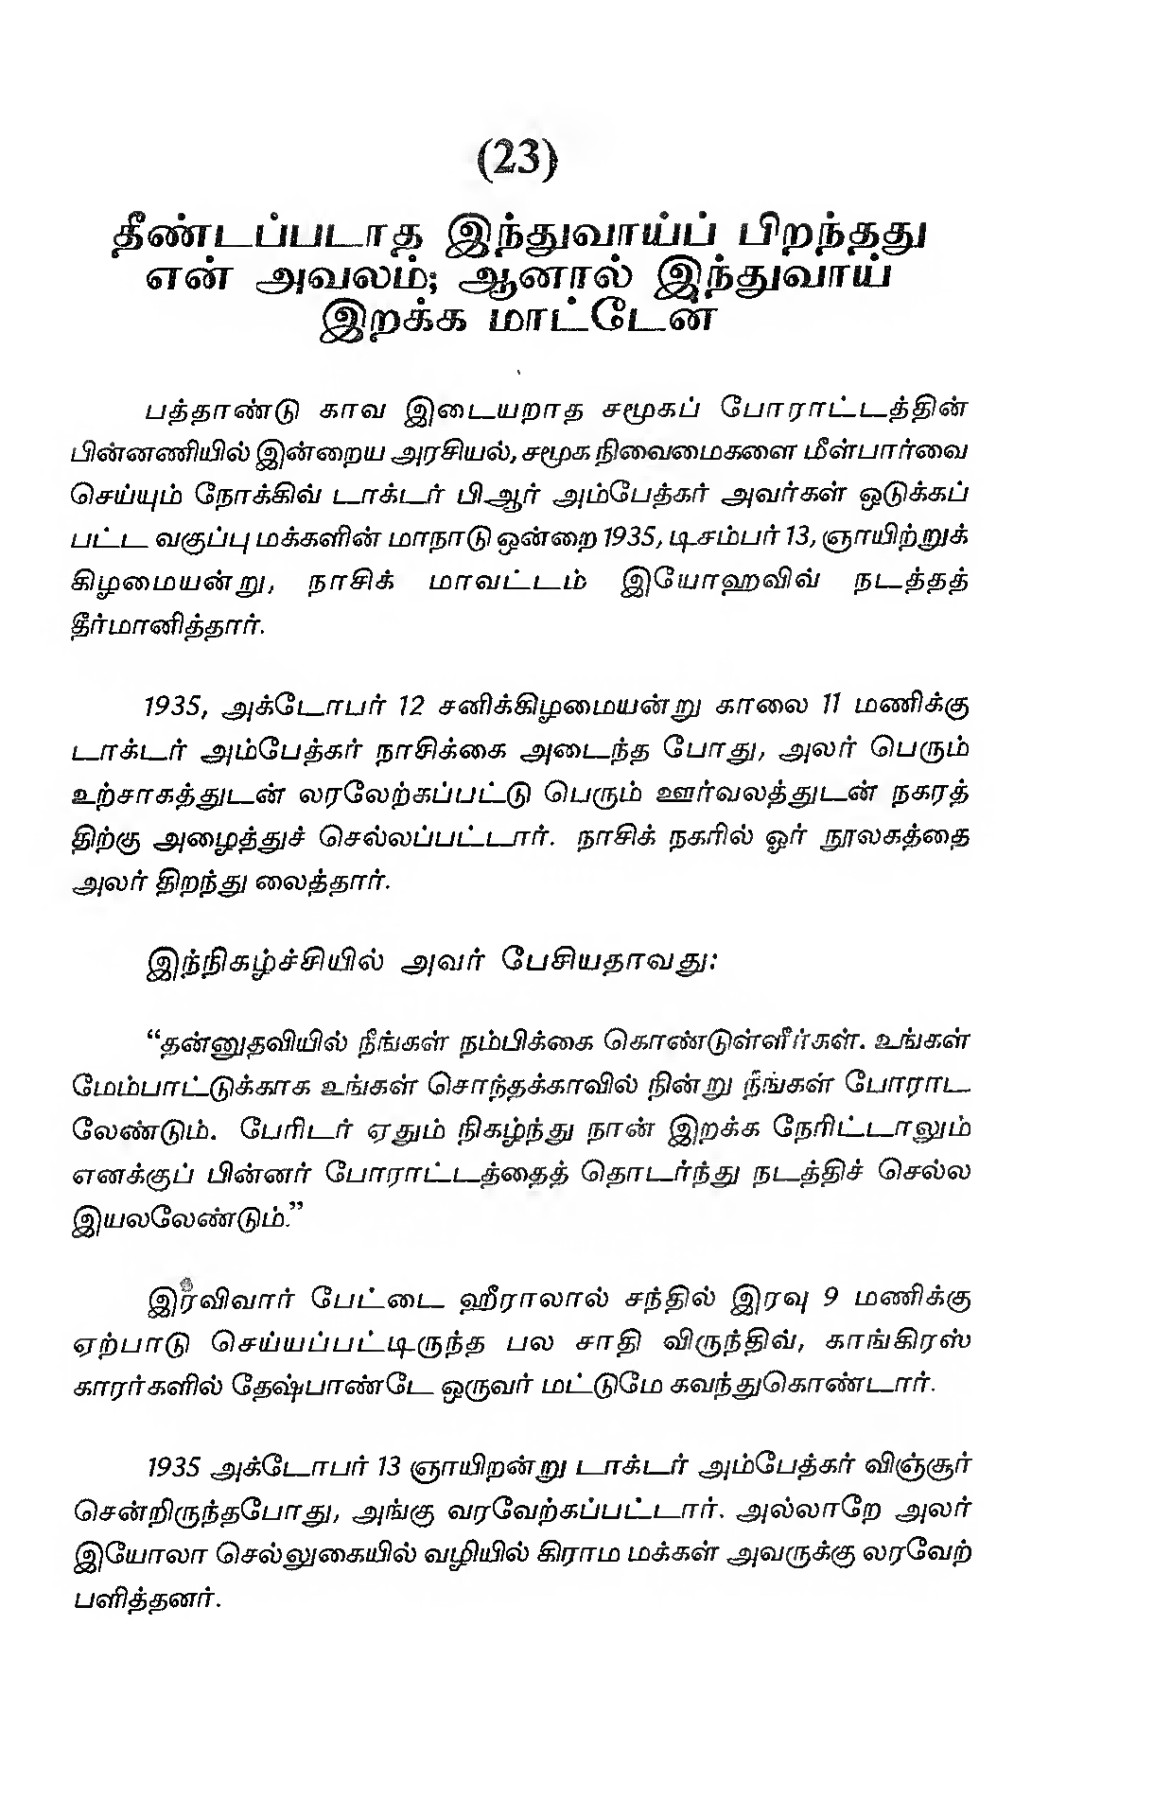 (23)
தீண்டப்படாத இந்துவாய்ப் பிறந்தது
என் அவலம்; ஆனால் இந்துவாய்
இறக்க மாட்டேன்
பத்தாண்டு காவ இடையறாத சமூகப் போராட்டத்தின்
பின்னணியில் இன்றைய அரசியல், சமூக நிவைமைகளை மீள்பார்வை
செய்யும் நோக்கிவ் டாக்டர் பிஆர் அம்பேத்கர் அவர்கள் ஒடுக்கப்
பட்ட வகுப்பு மக்களின் மாநாடு ஒன்றை 1935, டிசம்பர் 13, ஞாயிற்றுக்
கிழமையன்று, நாசிக் மாவட்டம் இயோஹவிவ் நடத்தத்
தீர்மானித்தார்.
1935, அக்டோபர் 12 சனிக்கிழமையன்று காலை 11 மணிக்கு
டாக்டர் அம்பேத்கர் நாசிக்கை அடைந்த போது, அலர் பெரும்
உற்சாகத்துடன் லரலேற்கப்பட்டு பெரும் ஊர்வலத்துடன் நகரத்
திற்கு அழைத்துச் செல்லப்பட்டார். நாசிக் நகரில் ஓர் நூலகத்தை
அலர் திறந்து லைத்தார்.
இந்நிகழ்ச்சியில் அவர் பேசியதாவது:
“தன்னுதவியில் நீங்கள் நம்பிக்கை கொண்டுள்ளீர்கள். உங்கள்
மேம்பாட்டுக்காக உங்கள் சொந்தக்காவில் நின்று நீங்கள் போராட
லேண்டும். பேரிடர் ஏதும் நிகழ்ந்து நான் இறக்க நேரிட்டாலும்
எனக்குப் பின்னர் போராட்டத்தைத் தொடர்ந்து நடத்திச் செல்ல
இயலலேண்டும்.”
இரவிவார் பேட்டை ஹீராலால் சந்தில் இரவு 9 மணிக்கு
ஏற்பாடு செய்யப்பட்டிருந்த பல சாதி விருந்திவ், காங்கிரஸ்
காரர்களில் தேஷ்பாண்டே ஒருவர் மட்டுமே கவந்துகொண்டார்.
1935 அக்டோபர் 13 ஞாயிறன்று டாக்டர் அம்பேத்கர் விஞ்சூர்
சென்றிருந்தபோது, அங்கு வரவேற்கப்பட்டார். அல்லாறே அலர்
இயோலா செல்லுகையில் வழியில் கிராம மக்கள் அவருக்கு லரவேற்
பளித்தனர்.